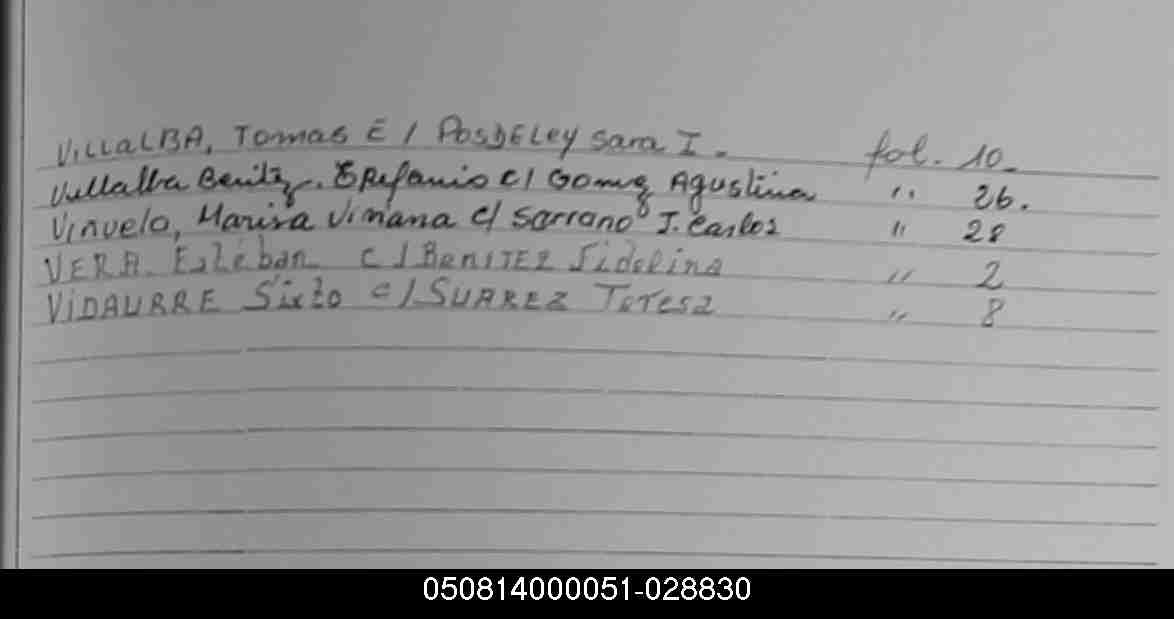 VILLALBA, Tomas E / POSDELEY Sara I. fol. 10.
Villalba Benitez, Epifanio c/ Gomez Agustina " 26.
Viñuelo, Marisa Viviana c/ Sarrano J. Carlos " 28
VERA Esteban c/ BENITEZ Fidelina " 2
VIDAURRE Sixto c/ SUAREZ Teresa " 8
050814000051-028830